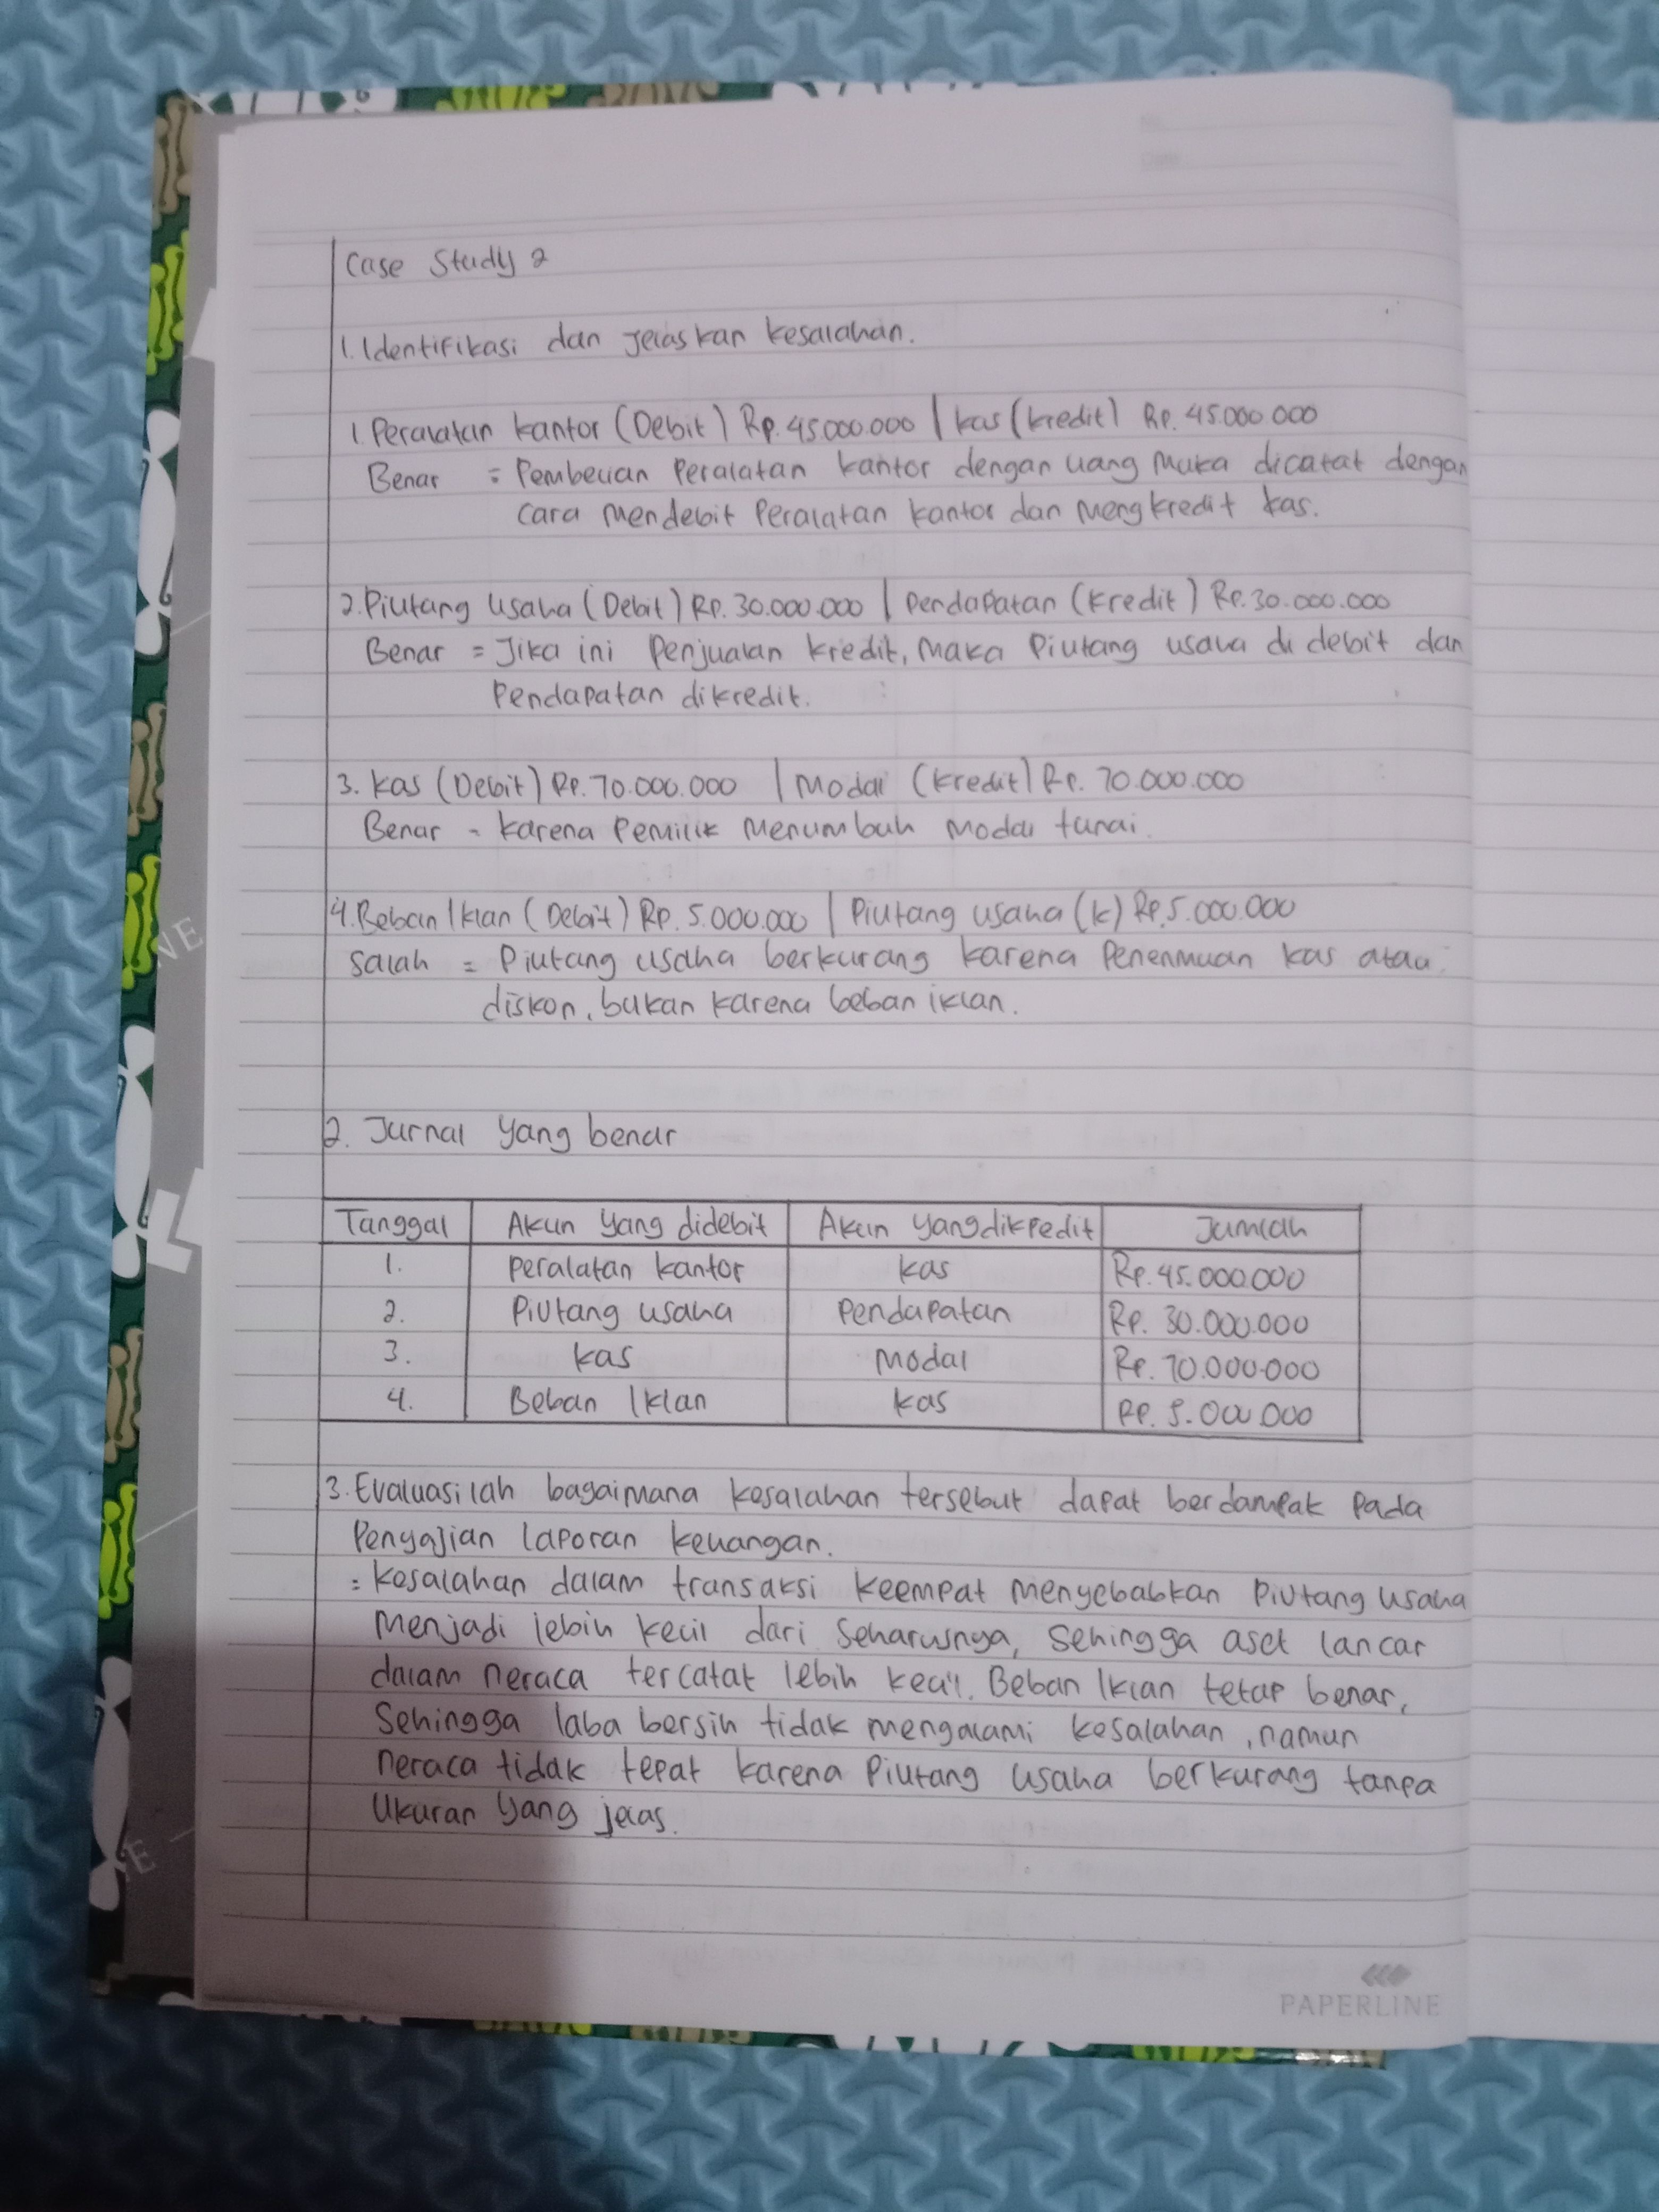 Case Study 2
1. Identifikasi dan Jelaskan kesalahan.
1. Peralatan kantor (Debit) Rp. 45.000.000 | kas (kredit) Rp. 45.000.000
Benar = Pembelian Peralatan kantor dengan uang Muka dicatat dengan
cara Mendebit Peralatan kantor dan Mengkredit kas.
2. Piutang Usaha (Debit) Rp. 30.000.000 | Pendapatan (kredit) Rp. 30.000.000
Benar = Jika ini Penjualan kredit, Maka Piutang usaha di debit dan
Pendapatan dikredit.
3. Kas (Debit) Rp. 70.000.000 | Modal (kredit) Rp. 70.000.000
Benar = karena Pemilik Menumbuh Modal tunai.
4. Beban Iklan (Debit) Rp. 5.000.000 | Piutang usaha (k) Rp. 5.000.000
Salah = Piutang usaha berkurang karena Penenmuan kas atau
diskon, bukan karena beban iklan.
2. Jurnal yang benar
Tanggal Akun yang didebit Akun yang dikredit Jumlah
1. Peralatan kantor kas Rp. 45.000.000
2. Piutang usaha Pendapatan Rp. 30.000.000
3. kas Modal Rp. 70.000.000
4. Beban Iklan kas Rp. 5.000.000
3. Evaluasilah bagaimana kesalahan tersebut dapat berdampak pada
Penyajian laporan keuangan.
= kesalahan dalam transaksi keempat menyebabkan Piutang usaha
Menjadi lebih kecil dari Seharusnya, Sehingga aset lancar
dalam neraca tercatat lebih kecil. Beban Iklan tetap benar,
Sehingga laba bersih tidak mengalami kesalahan, namun
neraca tidak tepat karena Piutang usaha berkurang tanpa
Ukuran yang jelas.
NE
E
PAPERLINE